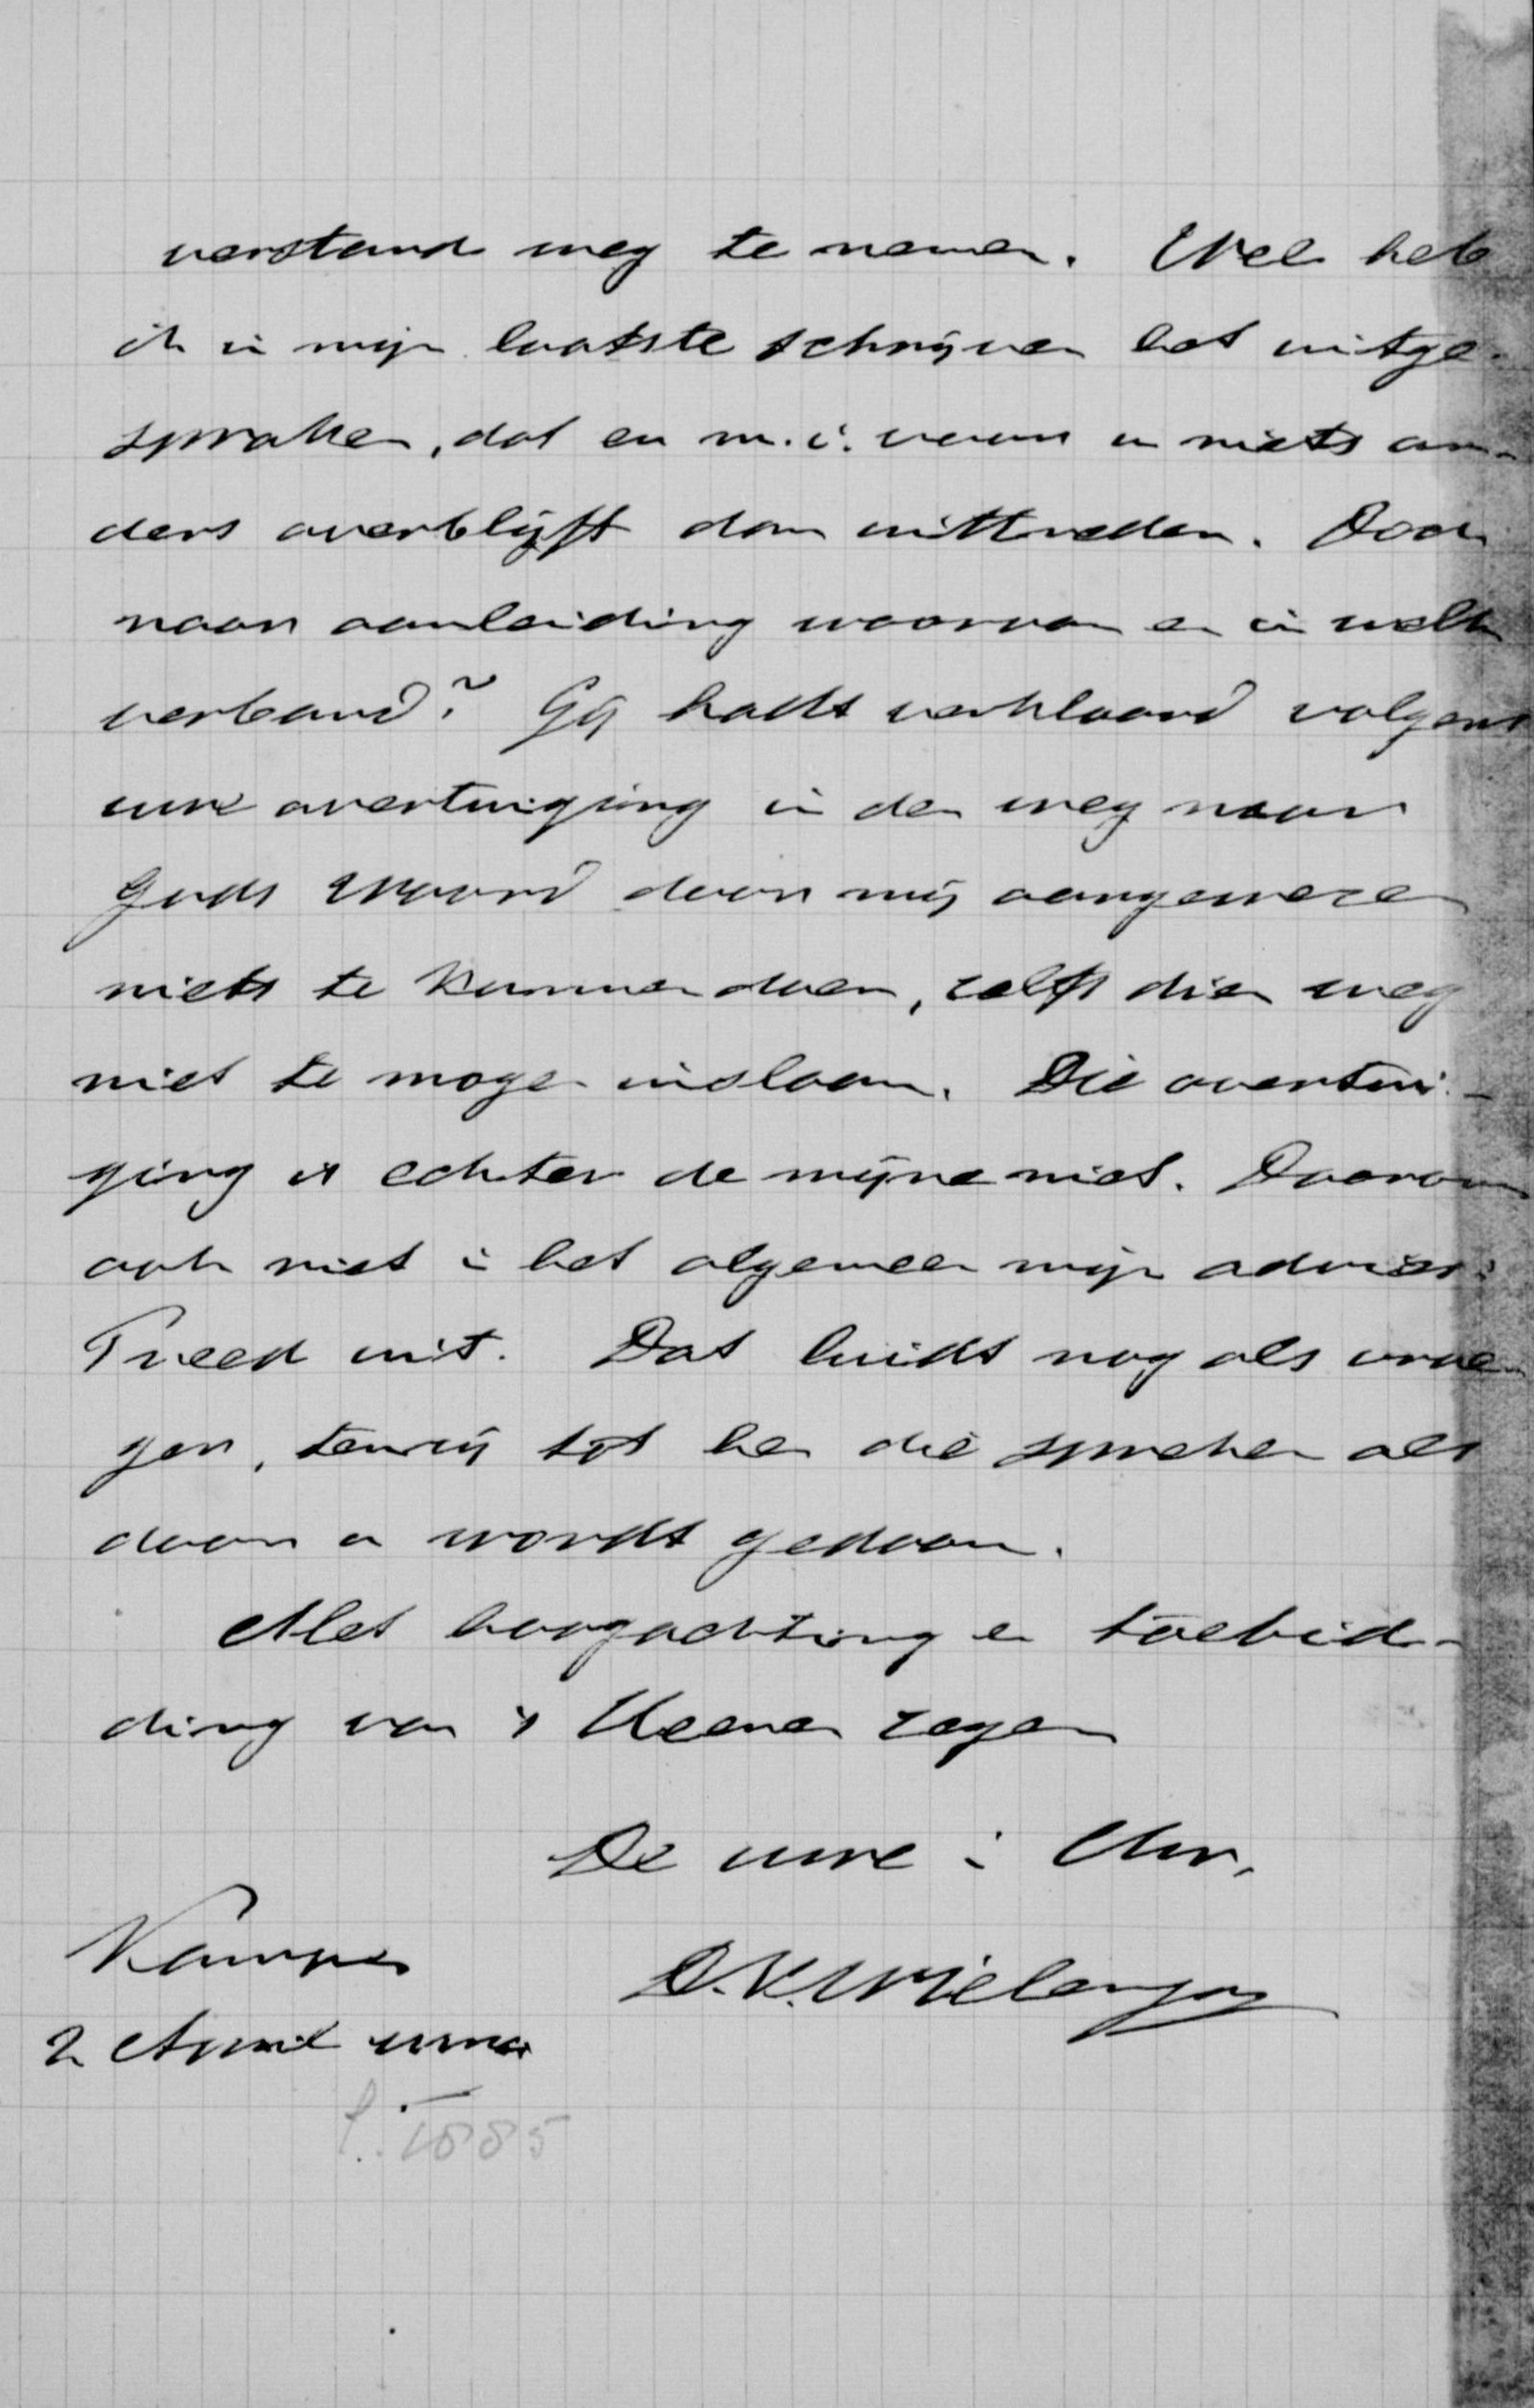 verstand weg te nemen. Wel heb
ik in mijn laatste schrijven het uitge-
sproken, dat er m.i. voor u niets an-
ders overblijft dan uittreden. Doch
naar aanleiding waarvan en in welk
verband? Gij hadt verklaard volgens
uwe overtuiging in den weg naar
Gods Woord door mij aangewezen
niets te kunnen doen, zelfs dien weg
niet te mogen inslaan. Die overtui-
ging is echter de mijne niet. Daarom
ook niet in het algemeen mijn advies:
Treed uit. Dat luidt nog als vroe-
ger, tenzij tot hen die spreken als
door u wordt gedaan.
Met hoogachting en toebid-
ding van 's Heeren zegen
De uwe in Chr.
Kampen
D.K. Wielenga
2 April
1885